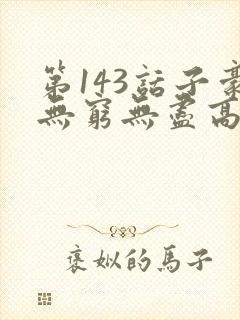 第143話子豪
無窮無盡高
褒姒的馬子